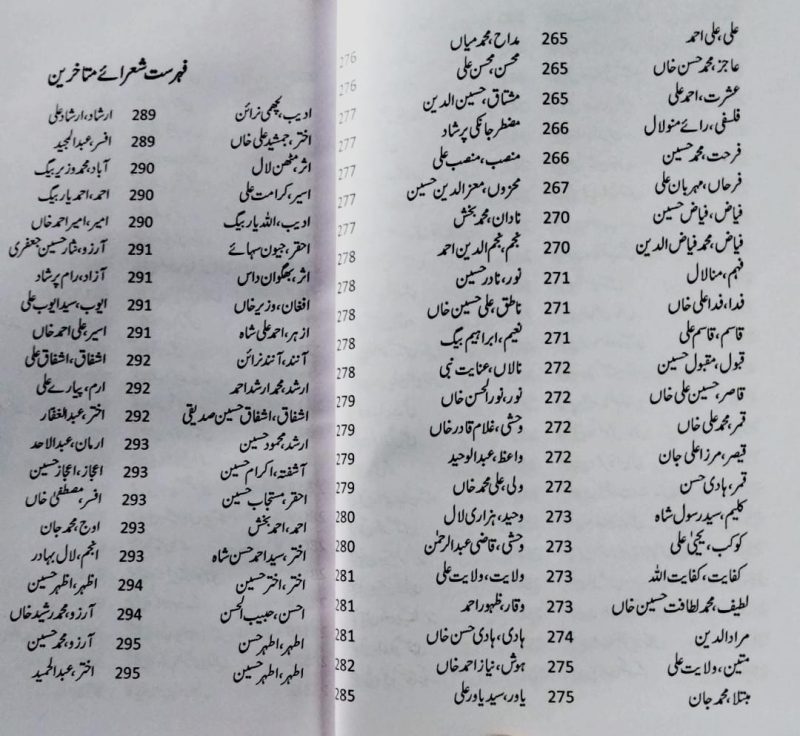 علی، علی احمد 265 مداح، محمد میاں 276
عاجز، محمد حسن خاں 265 محسن، محسن علی 276
عشرت، احمد علی 265 مشتاق، حسین الدین 277
فلسفی، رائے منولال 266 مضطر جانکی پرشاد 277
فرحت، محمد حسین 266 منصب، منصب علی 277
فرحاں، مہربان علی 267 محزوں، معزالدین حسین 277
فیاض، فیاض حسین 270 نادان، محمد بخش 277
فیاض، محمد فیاض الدین 270 نجم، نجم الدین احمد 278
فہیم، منالال 271 نور، نادر حسین 278
فدا، فدا علی خاں 271 ناطق، علی حسین خاں 278
قاسم، قاسم علی 271 نعیم، ابراہیم بیگ 278
قبول، مقبول حسین 272 نالاں، عنایت نبی 278
قاصر، حسین علی خاں 272 نور، نورالحسن خاں 279
قمر، محمد علی خاں 272 وحشی، غلام قادر خاں 279
قیصر، مرزا علی جان 272 واعظ، عبدالوحید 279
قمر، ہادی حسن 272 ولی، علی محمد خاں 279
کلیم، سید رسول شاہ 273 وحید، ہزاری لال 280
کوکب، یحییٰ علی 273 وحشی، قاضی عبدالرحمٰن 280
کفایت، کفایت اللہ 273 ولایت، ولایت علی 281
لطیف، محمد لطافت حسین خاں 273 وقار، ظہور احمد 281
مراد الدین 274 ہادی، ہادی حسن خاں 281
متین، ولایت علی 275 ہوش، نیاز احمد خاں 282
مبتلا، محمد جان 275 یاور، سید یاور علی 285
فہرست شعرائے متاخرین
ادیب، لچھمی نرائن 289 ارشاد، ارشاد علی
اختر، جمشید علی خاں 289 افسر، عبدالمجید
اثر، مٹھن لال 290 آباد، محمد وزیر بیگ
اسیر، کرامت علی 290 احمد، احمد یار بیگ
ادیب، اللہ یار بیگ 290 امیر، امیر احمد خاں
احقر، جیون سہائے 291 آرزو، نثار حسین جعفری
اثر، بھگوان داس 291 آزاد، رام پرشاد
افغان، وزیر خاں 291 ایوب، سید ایوب علی
ازہر، احمد علی شاہ 291 اسیر، علی احمد خاں
آنند، آنند نرائن 292 اشفاق، اشفاق علی
ارشد، محمد ارشد احمد 292 ارم، پیارے علی
اشفاق، اشفاق حسین صدیقی 292 اختر، عبدالغفار
ارشد، محمود حسین 293 ارمان، عبدالاحد
آشفتہ، اکرام حسین 293 اعجاز، اعجاز حسین
احقر، مستجاب حسین 293 افسر، مصطفیٰ خاں
احمد، احمد بخش 293 اوج، محمد جان
اختر، سید احمد حسن شاہ 293 انجم، لال بہادر
اختر، اختر حسین 294 اظہر، اظہر حسین
احسن، حبیب الحسن 294 آرزو، محمد رشید خاں
اطہر، اطہر حسن 295 آرزو، محمد حسین
اطہر، اطہر حسین 295 اختر، عبدالحمید